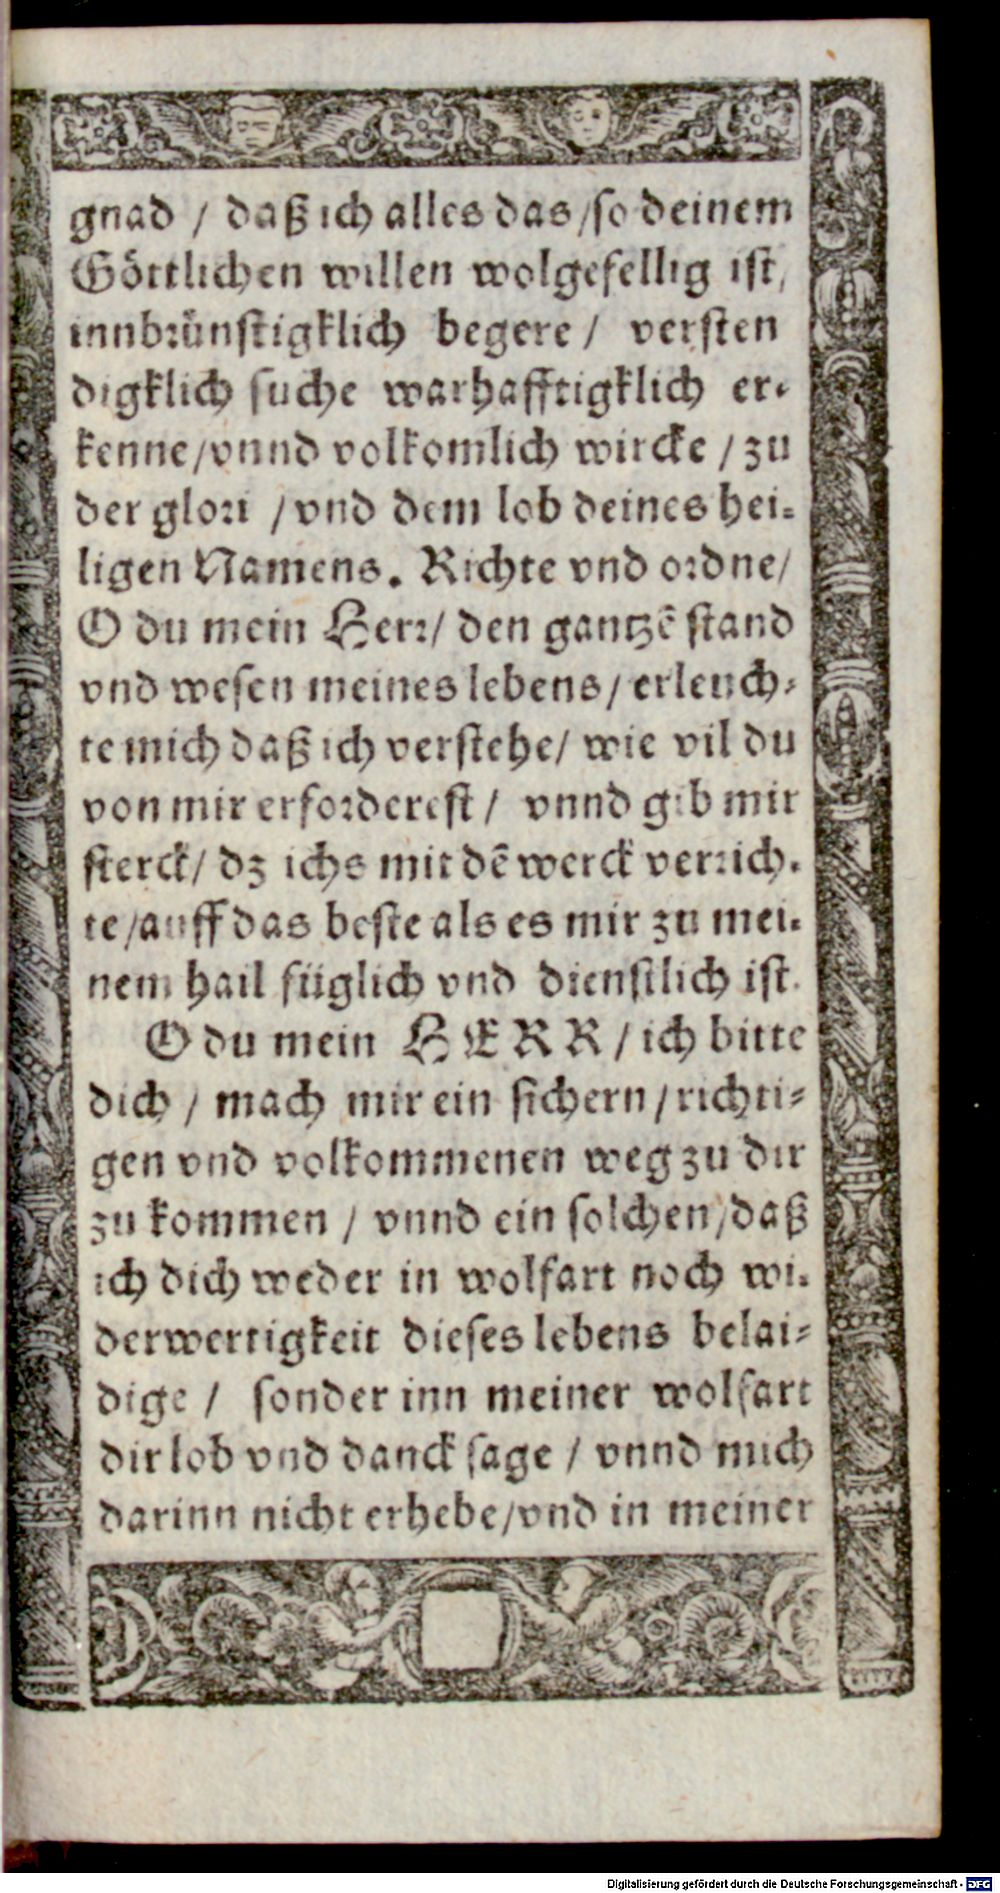 gnad / daß ich alles das /so deinem
Göttlichen willen wolgefellig ist,
innbrünstigklich begere / versten
digklich suche warhafftigklich er-
kenne/vnnd volkomlich wircke / zu
der glori / vnd dem lob deines hei-
ligen Namens. Richte vnd ordne/
O du mein Herr/ den gantzē stand
vnd wesen meines lebens / erleuch-
te mich daß ich verstehe/ wie vil du
von mir erforderest / vnnd gib mir
sterck/ dz ichs mit dē werck verrich-
te/auff das beste als es mir zu mei-
nem hail füglich vnd dienstlich ist.
O du mein HERR / ich bitte
dich / mach mir ein sichern / richti-
gen vnd volkommenen weg zu dir
zu kommen / vnnd ein solchen/daß
ich dich weder in wolfart noch wi-
derwertigkeit dieses lebens belai-
dige / sonder inn meiner wolfart
dir lob vnd danck sage / vnnd mich
darinn nicht erhebe/vnd in meiner
Digitalisierung gefördert durch die Deutsche Forschungsgemeinschaft - DFG